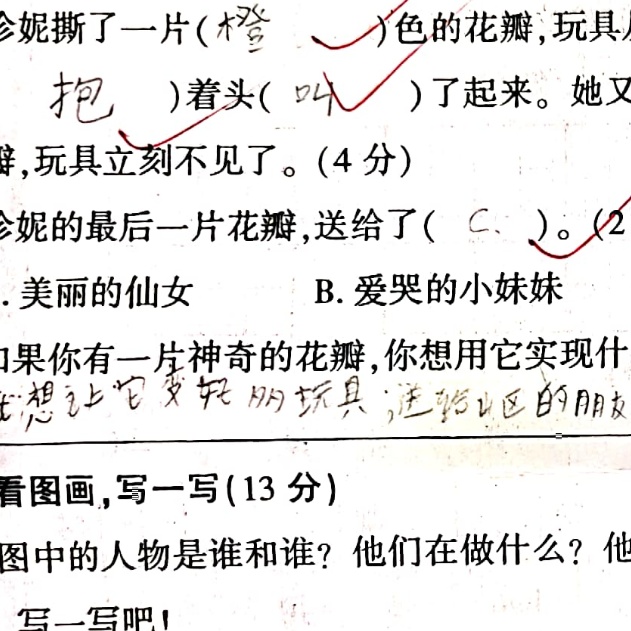 妮撕了一片(橙)色的花瓣,玩具
抱)着头(叫)了起来。她又
瓣,玩具立刻不见了。(4分)
妮的最后一片花瓣,送给了(C、)。(2
. 美丽的仙女 B. 爱哭的小妹妹
如果你有一片神奇的花瓣,你想用它实现什
我想让它变 玩具,送给山区的朋友
看图画,写一写(13分)
图中的人物是谁和谁?他们在做什么?他
写一写吧!